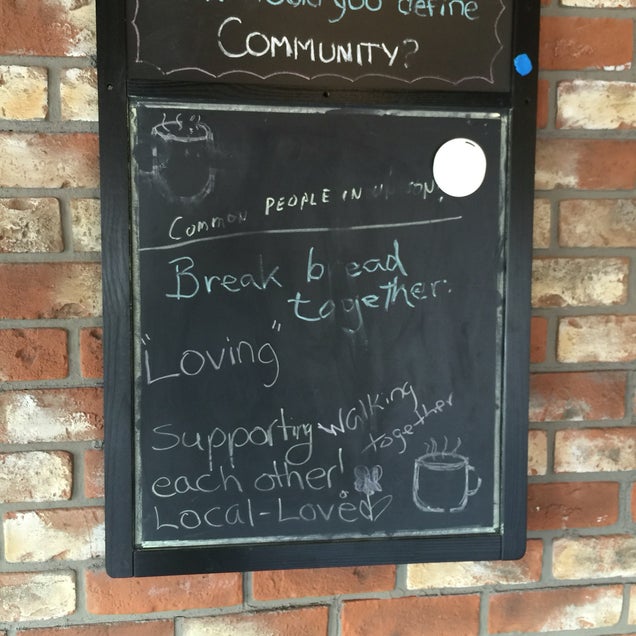 would you define
COMMUNITY?
COMMON PEOPLE IN
Break bread
together.
"Loving"
Supporting walking
together
each other!
LOCAL-Loved